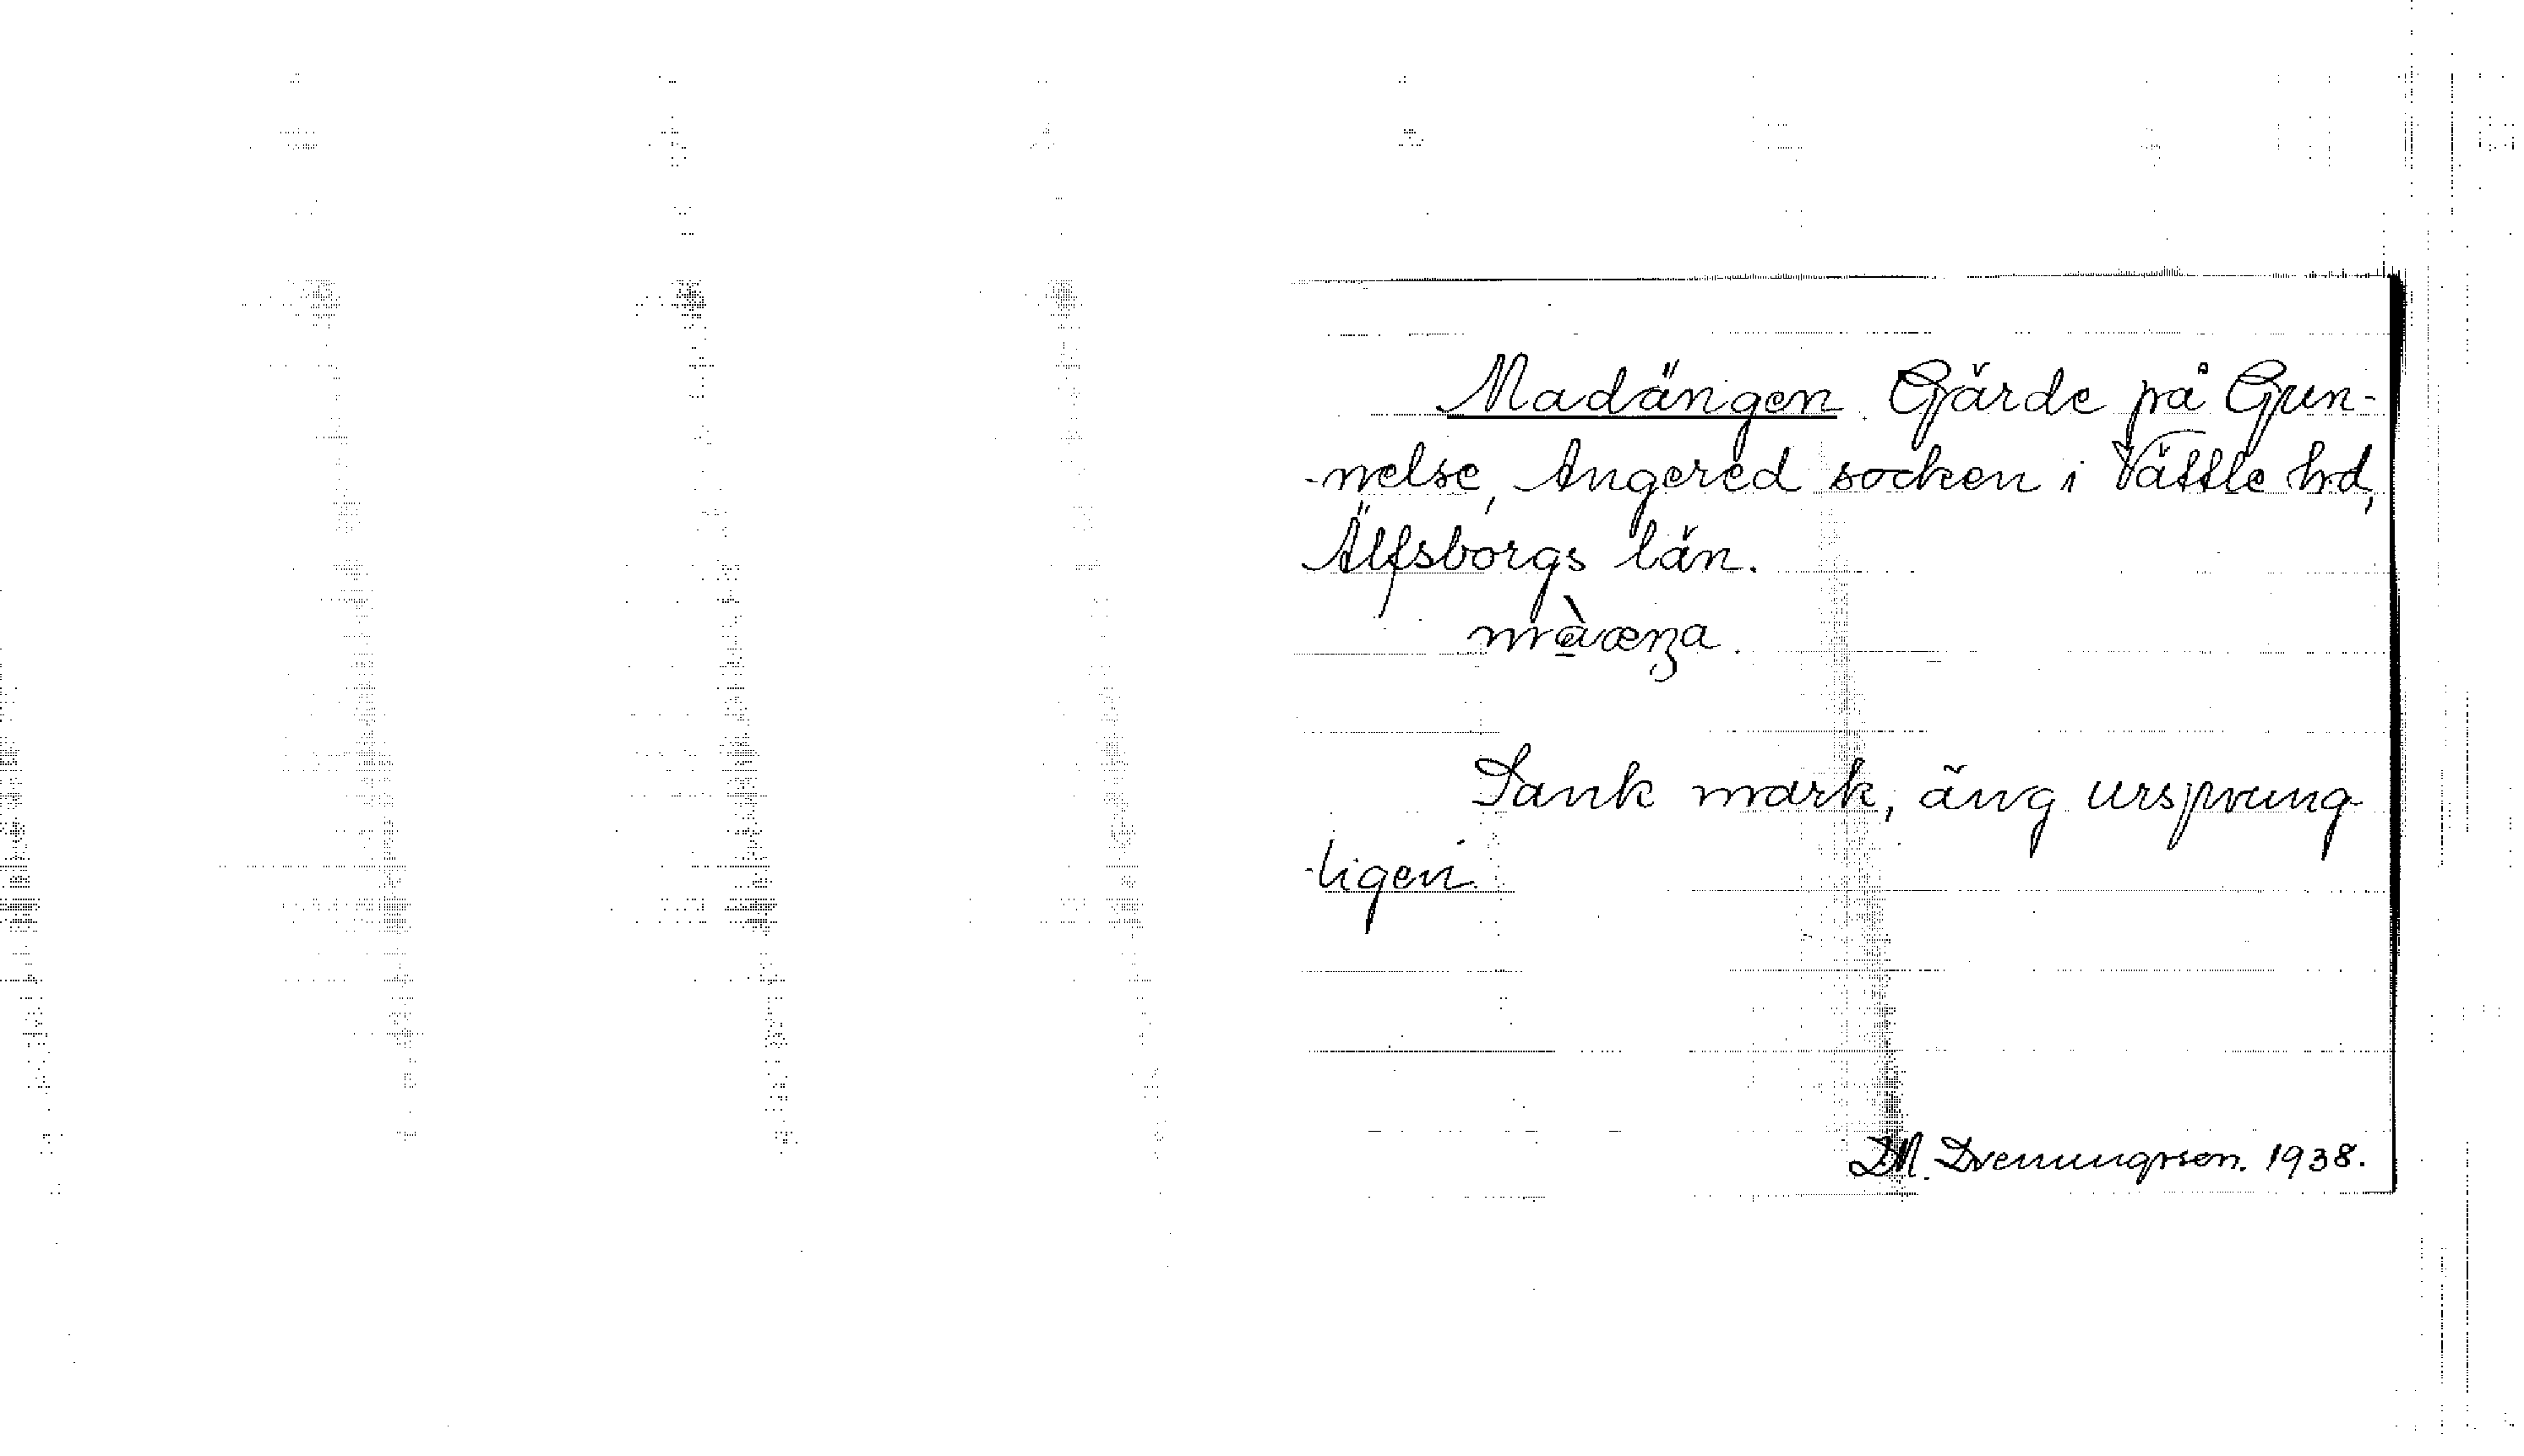 Madängen. Gärde på Gun-
-nelse, Angered socken i Vättle hd,
Älfsborgs län.
màæŋa.
Sank mark, äng ursprung-
-ligen.
D.N. Svenungsson. 1938.